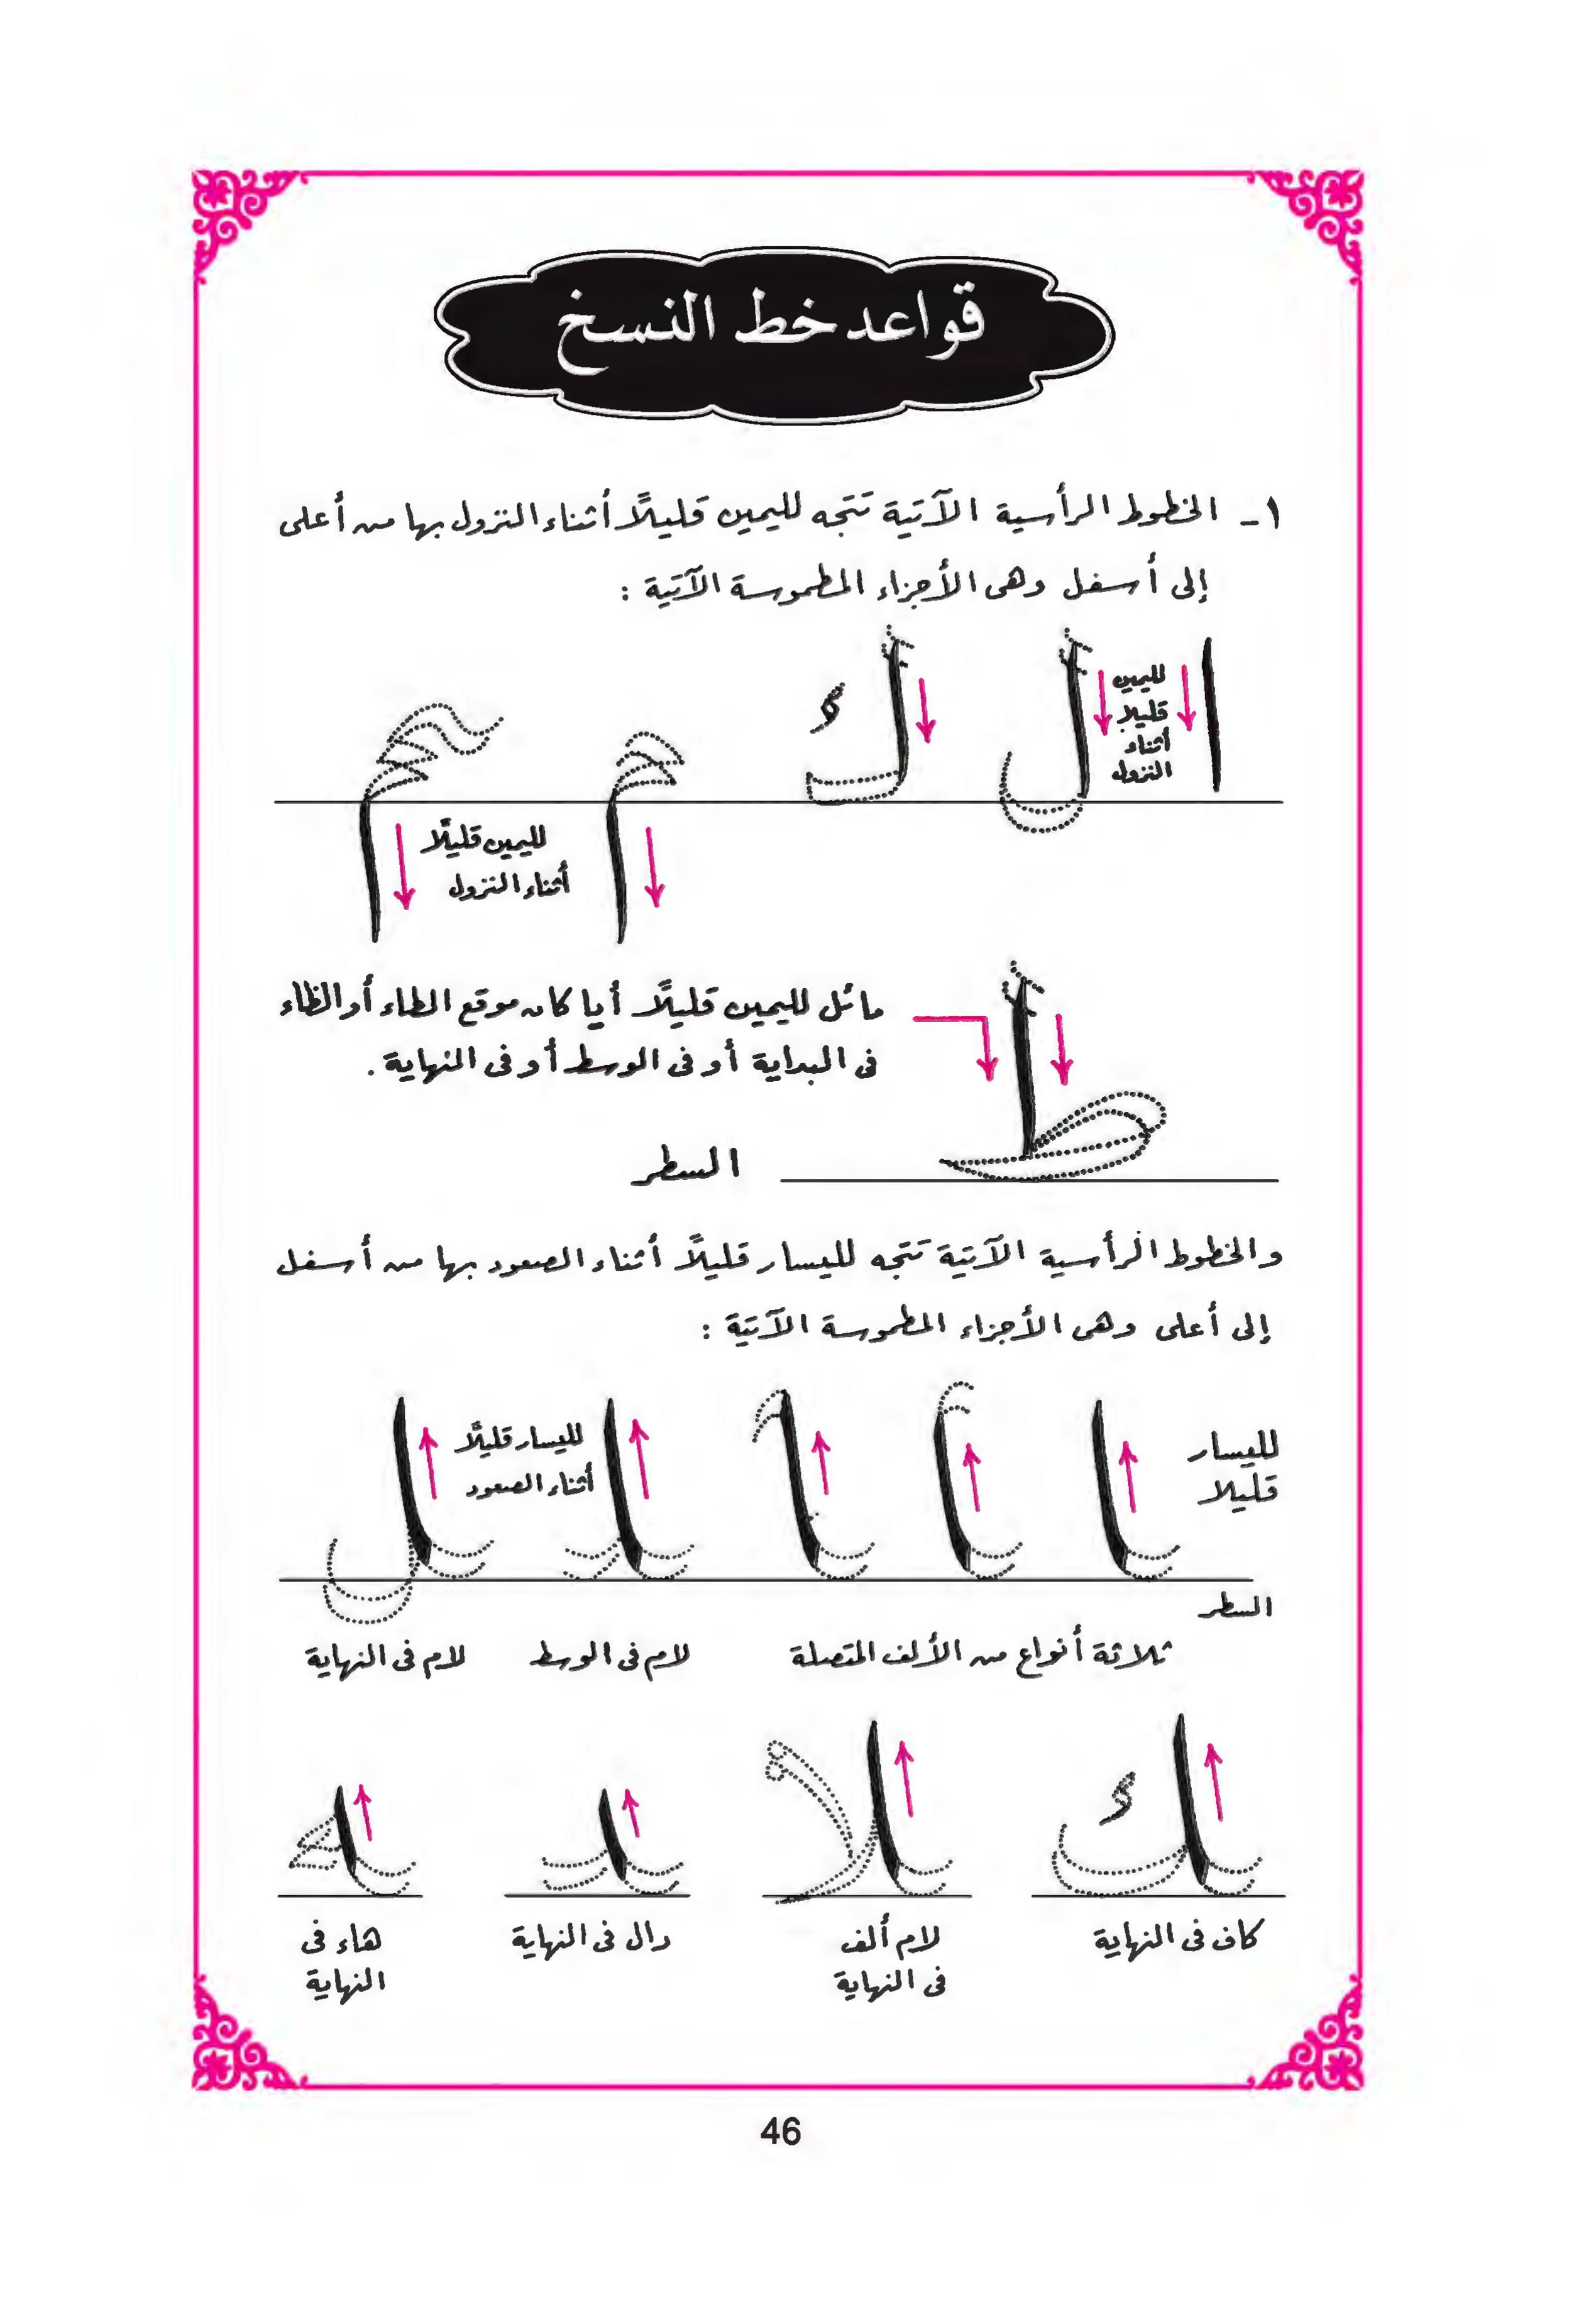 قواعد خط النسخ
١- الخطوط الرأسية الآتية تتجه لليمين قليلًا أثناء النزول بها من أعلى
إلى أسفل وهى الأجزاء المطموسة الآتية :
ا ل ك
لليمين
قليلا
أثناء
النزول
م م
لليمين قليلًا
أثناء النزول
ط
مائل لليمين قليلًا أيا كان موقع الطاء أو الظاء
فى البداية أو فى الوسط أو فى النهاية .
السطر
والخطوط الرأسية الآتية تتجه لليسار قليلًا أثناء الصعود بها من أسفل
إلى أعلى وهى الأجزاء المطموسة الآتية :
لليسار
قليلا
لليسار قليلًا
أثناء الصعود
السطر
ثلاثة أنواع من الألف المتصلة
لام فى الوسط
لام فى النهاية
كاف فى النهاية
لام ألف
فى النهاية
دال فى النهاية
هاء فى
النهاية
46